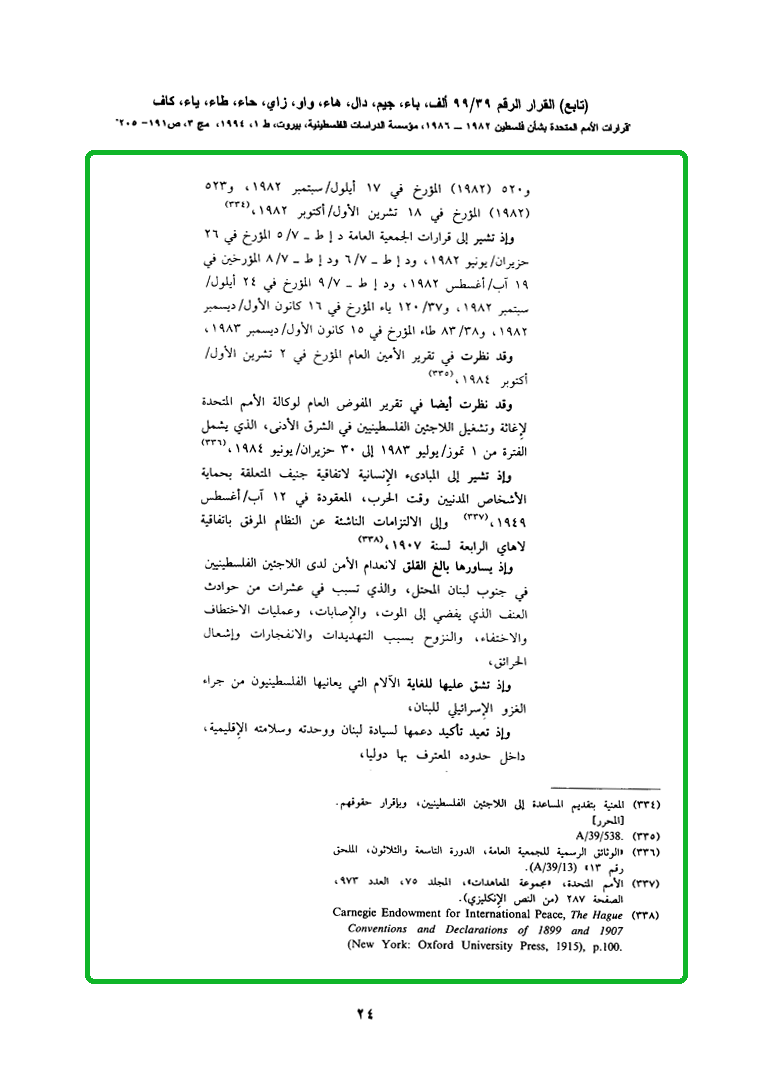 (تابع) القرار الرقم ٩٩/٣٩ ألف، باء، جيم، دال، هاء، واو، زاي، حاء، طاء، ياء، كاف
"قرارات الأمم المتحدة بشأن فلسطين ١٩٨٢ – ١٩٨٦، مؤسسة الدراسات الفلسطينية، بيروت، ط ١، ١٩٩٤، مج ٣، ص١٩١- ٢٠٥"
و٥٢٠ (١٩٨٢) المؤرخ في ١٧ أيلول/سبتمبر ١٩٨٢، و٥٢٣
(١٩٨٢) المؤرخ في ١٨ تشرين الأول/أكتوبر ١٩٨٢،(٣٣٤)
وإذ تشير إلى قرارات الجمعية العامة د إ ط ـ ٥/٧ المؤرخ في ٢٦
حزيران/يونيو ١٩٨٢، ود إ ط ـ ٦/٧ ود إ ط ـ ٨/٧ المؤرخين في
١٩ آب/أغسطس ١٩٨٢، ود إ ط ـ ٩/٧ المؤرخ في ٢٤ أيلول/
سبتمبر ١٩٨٢، و١٢٠/٣٧ ياء المؤرخ في ١٦ كانون الأول/ديسمبر
١٩٨٢، و٨٣/٣٨ طاء المؤرخ في ١٥ كانون الأول/ديسمبر ١٩٨٣،
وقد نظرت في تقرير الأمين العام المؤرخ في ٢ تشرين الأول/
أكتوبر ١٩٨٤،(٣٣٥)
وقد نظرت أيضا في تقرير المفوض العام لوكالة الأمم المتحدة
لإغاثة وتشغيل اللاجئين الفلسطينيين في الشرق الأدنى، الذي يشمل
الفترة من ١ تموز/يوليو ١٩٨٣ إلى ٣٠ حزيران/يونيو ١٩٨٤،(٣٣٦)
وإذ تشير إلى المبادىء الإنسانية لاتفاقية جنيف المتعلقة بحماية
الأشخاص المدنيين وقت الحرب، المعقودة في ١٢ آب/أغسطس
١٩٤٩،(٣٣٧) وإلى الالتزامات الناشئة عن النظام المرفق باتفاقية
لاهاي الرابعة لسنة ١٩٠٧،(٣٣٨)
وإذ يساورها بالغ القلق لانعدام الأمن لدى اللاجئين الفلسطينيين
في جنوب لبنان المحتل، والذي تسبب في عشرات من حوادث
العنف الذي يفضي إلى الموت، والإصابات، وعمليات الاختطاف
والاختفاء، والنزوح بسبب التهديدات والانفجارات وإشعال
الحرائق،
وإذ تشق عليها للغاية الآلام التي يعانيها الفلسطينيون من جراء
الغزو الإسرائيلي للبنان،
وإذ تعيد تأكيد دعمها لسيادة لبنان ووحدته وسلامته الإقليمية،
داخل حدوده المعترف بها دوليا،
(٣٣٤) المعنية بتقديم المساعدة إلى اللاجئين الفلسطينيين، وبإقرار حقوقهم.
[المحرر]
(٣٣٥) A/39/538.
(٣٣٦) «الوثائق الرسمية للجمعية العامة، الدورة التاسعة والثلاثون، الملحق
رقم ١٣» (A/39/13).
(٣٣٧) الأمم المتحدة، «مجموعة المعاهدات»، المجلد ٧٥، العدد ٩٧٣،
الصفحة ٢٨٧ (من النص الإنكليزي).
(٣٣٨) Carnegie Endowment for International Peace, The Hague
Conventions and Declarations of 1899 and 1907
(New York: Oxford University Press, 1915), p.100.
٢٤